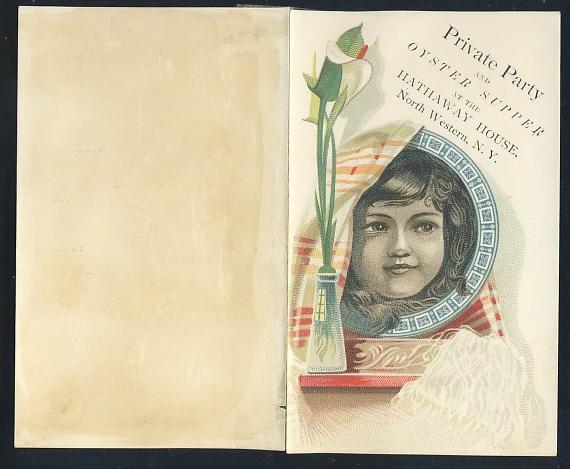 Private Party
AND
OYSTER SUPPER
AT THE
HATHAWAY HOUSE,
North Western, N. Y.